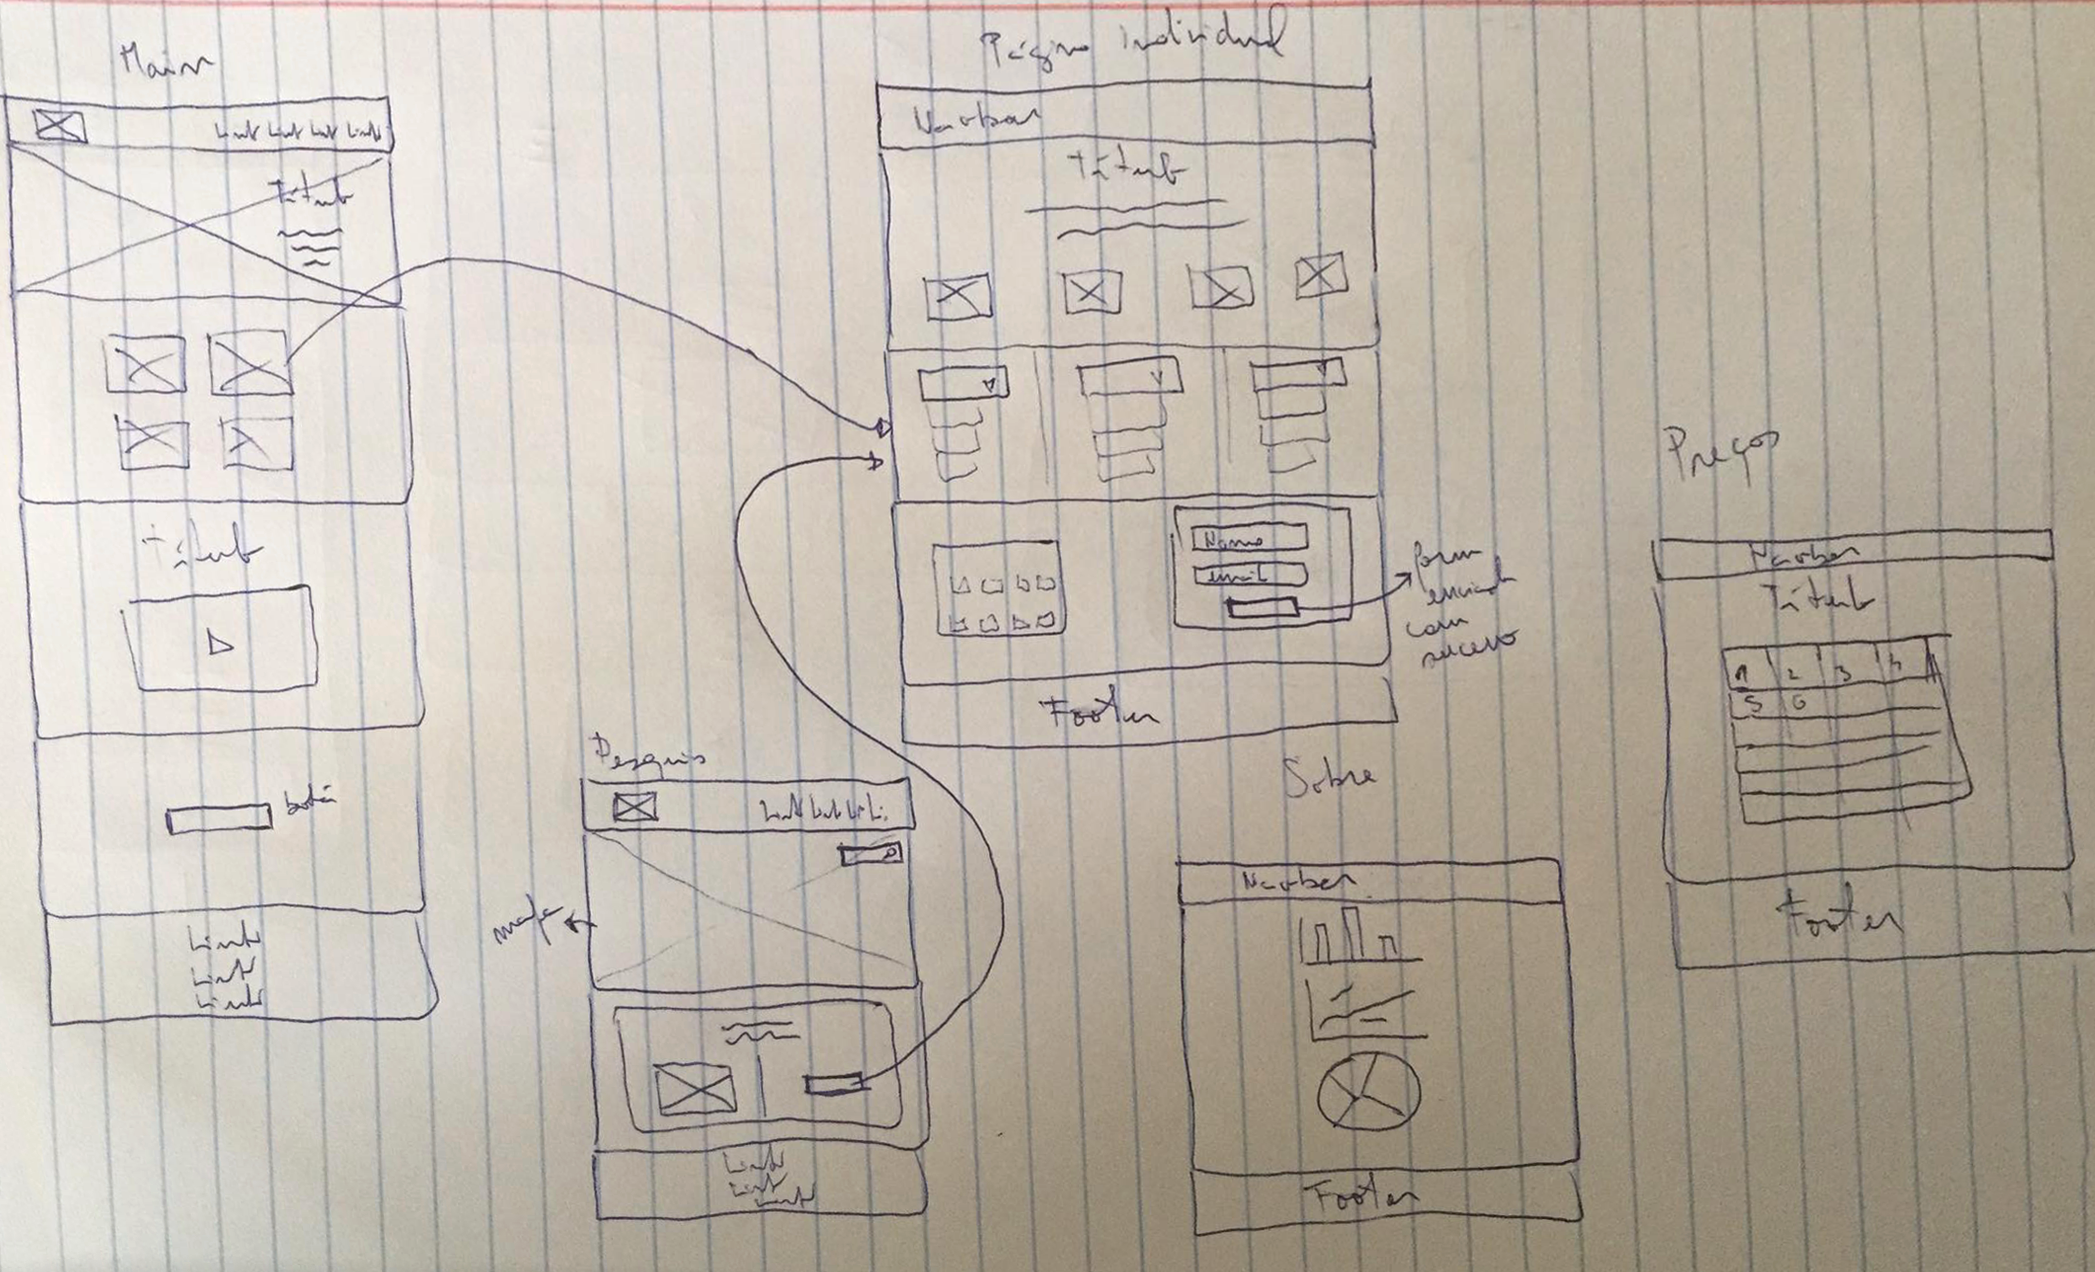 Main
Link Link Link Link
Título
Título
botão
Link
Link
Link
Página individual
Navbar
Título
Nome
email
Form
enviado
com
sucesso
Footer
Pesquisa
Link Link Link Li
mapa
Link
Link
Link
Sobre
Navbar
Footer
Preços
Navbar
Título
1 2 3 4
5 6
Footer